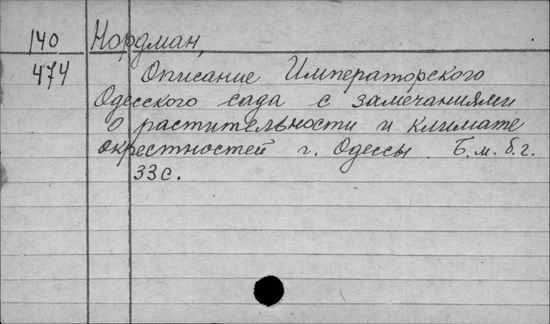 140 Нордман,
474 Описание Императорского
Одесского сада с замечаниями
о растительности и климате
окрестностей г. Одессы. Б.м.б.г.
33с.